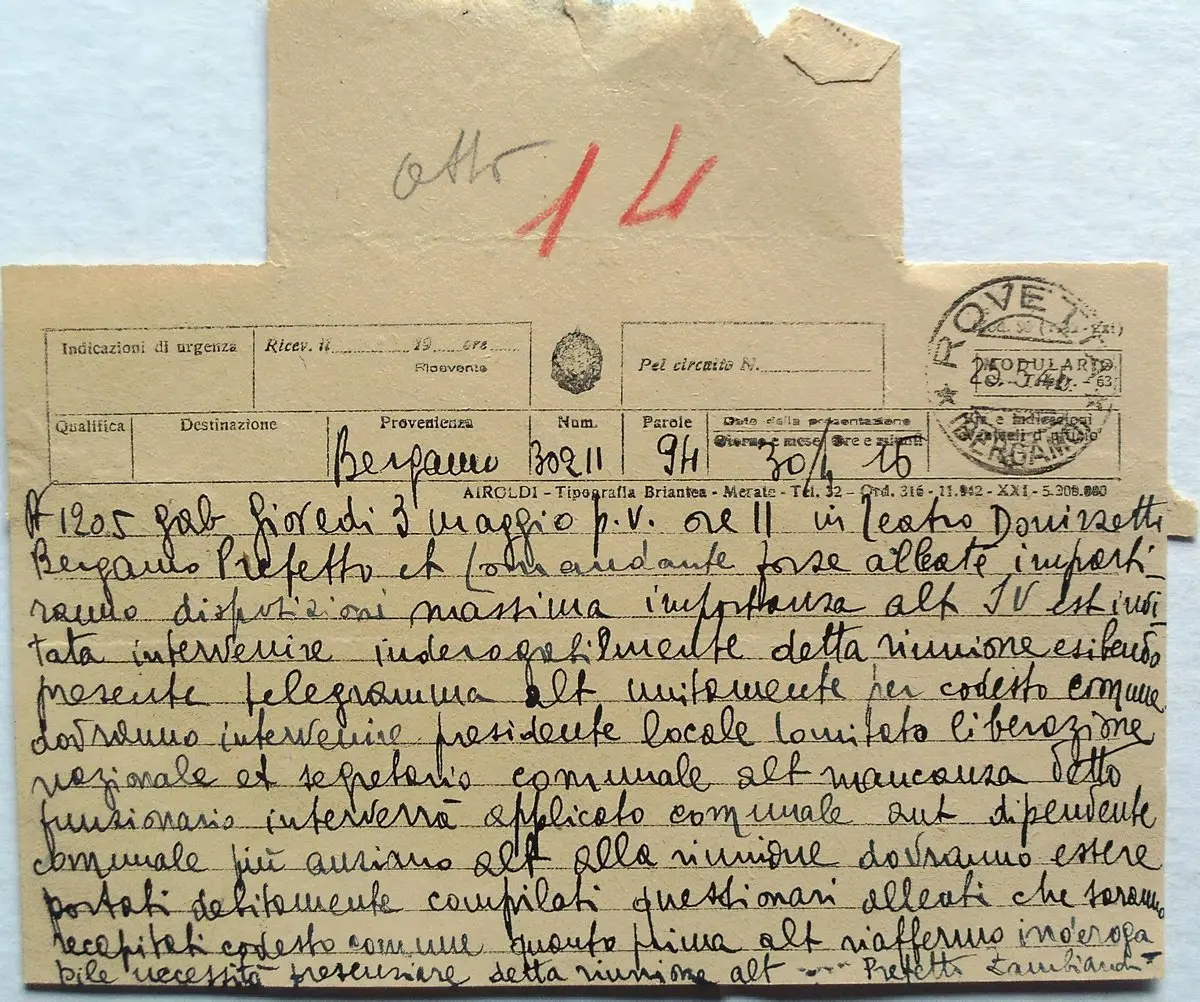 atto 14
ROVETTA
Indicazioni di urgenza
Ricev. il 19 ore
Ricevente
Pel circuito N.
MODULARIO
- 63
BERGAMO
Qualifica Destinazione Provenienza Num. Parole Data della presentazione
Giorno e mese Ore e minuti
Vie e indicazioni
eventuali d'ufficio
Bergamo 30211 94 30/4 16
AIROLDI - Tipografia Briantea - Merate - Tel. 32 - Ord. 316 - 11.942 - XXI - 5.200.000
1205 gab Giovedì 3 maggio p.v. ore 11 in Teatro Donizzetti
Bergamo Prefetto et Comandante forze alleate imparti-
ranno disposizioni massima importanza alt SV est invi
tata intervenire inderogabilmente detta riunione esibendo
presente telegramma alt unitamente per codesto comune
dovranno intervenire presidente locale Comitato liberazione
nazionale et segretario comunale alt mancanza detto
funzionario interverrà applicato comunale aut dipendente
comunale più anziano alt alla riunione dovranno essere
portati debitamente compilati questionari alleati che saranno
recapitati codesto comune quanto prima alt riaffermo inderoga
bile necessità presenziare detta riunione alt Prefetto Zambianchi